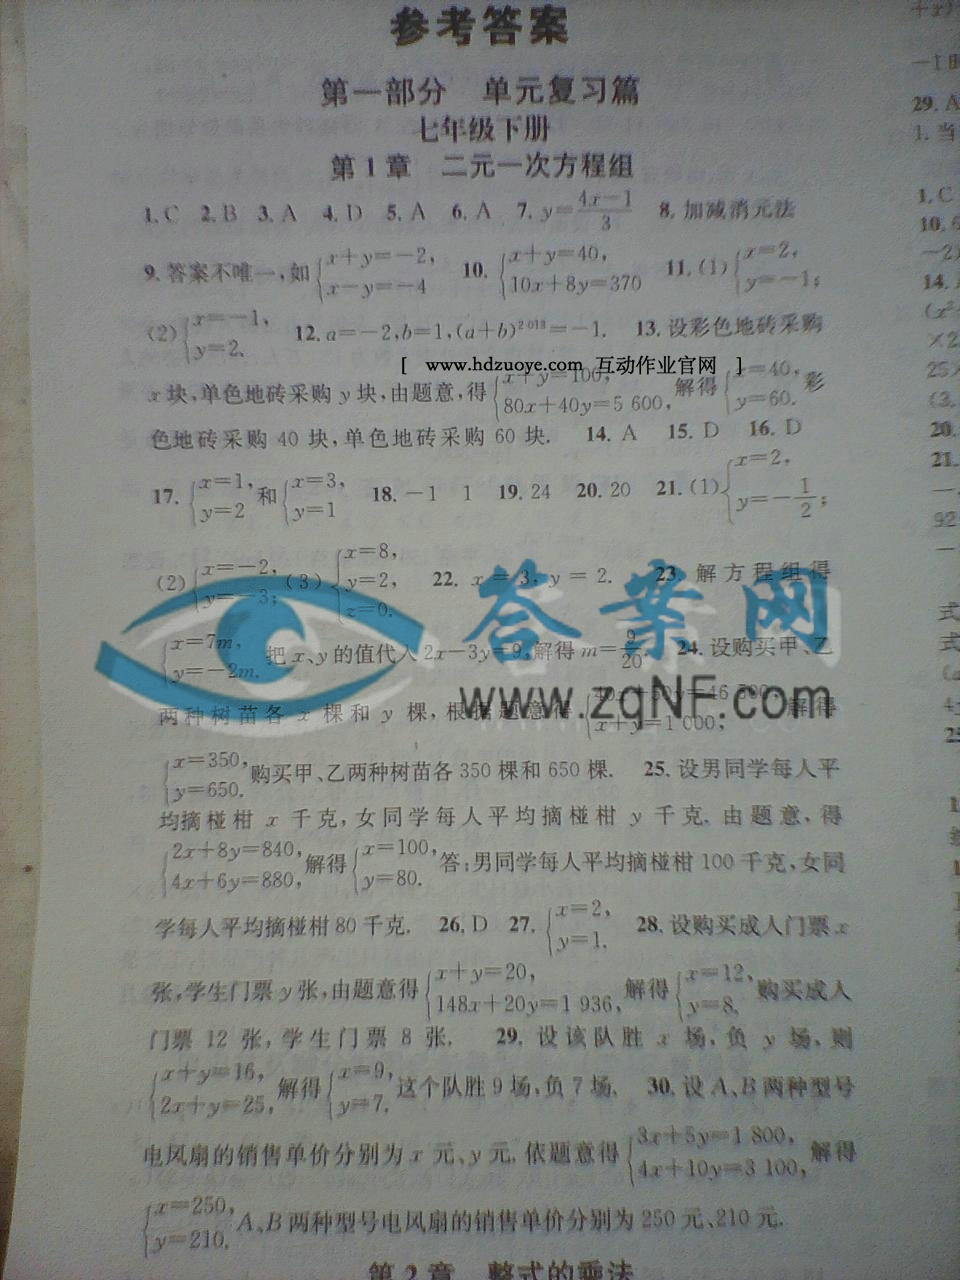 参考答案
第一部分 单元复习篇
七年级下册
第1章 二元一次方程组
1.C 2.B 3.A 4.D 5.A 6.A 7.y=\frac{4x-1}{3} 8.加减消元法
9.答案不唯一,如{x+y=-2, x-y=-4 10.{x+y=40, 10x+8y=370 11.(1){x=2, y=-1;
(2){x=-1, y=2. 12.a=-2,b=1,(a+b)^{2013}=-1. 13.设彩色地砖采购
[ www.hdzuoye.com 互动作业官网 ]
x块,单色地砖采购y块,由题意,得{x+y=100, 80x+40y=5 600, 解得{x=40, y=60. 彩
色地砖采购40块,单色地砖采购60块. 14.A 15.D 16.D
17.{x=1, y=2 和{x=3, y=1 18.-1 1 19.24 20.20 21.(1){x=2, y=-\frac{1}{2};
(2){x=-2, y=-3; (3){x=8, y=2, z=0. 22. x=3, y=2. 23. 解方程组得
答案网
{x=7m, y=-2m. 把x、y的值代入2x-3y=9,解得m=\frac{9}{20}. 24.设购买甲、乙
www.zqNF.com
两种树苗各x棵和y棵,根据题意得 x+y=1 000; 解得
{x=350, y=650. 购买甲、乙两种树苗各350棵和650棵. 25.设男同学每人平
均摘椪柑x千克,女同学每人平均摘椪柑y千克.由题意,得
{2x+8y=840, 4x+6y=880, 解得{x=100, y=80. 答:男同学每人平均摘椪柑100千克,女同
学每人平均摘椪柑80千克. 26.D 27.{x=2, y=1. 28.设购买成人门票x
张,学生门票y张,由题意得{x+y=20, 148x+20y=1 936, 解得{x=12, y=8. 购买成人
门票12张,学生门票8张. 29.设该队胜x场,负y场,则
{x+y=16, 2x+y=25, 解得{x=9, y=7. 这个队胜9场,负7场. 30.设A、B两种型号
电风扇的销售单价分别为x元、y元.依题意得{3x+5y=1 800, 4x+10y=3 100, 解得
{x=250, y=210. A、B两种型号电风扇的销售单价分别为250元、210元.
第2章 整式的乘法
+x)
29.A
1.当
1.C
-2)
14.
×2
25×
(3.
20.
21.
92
式
式